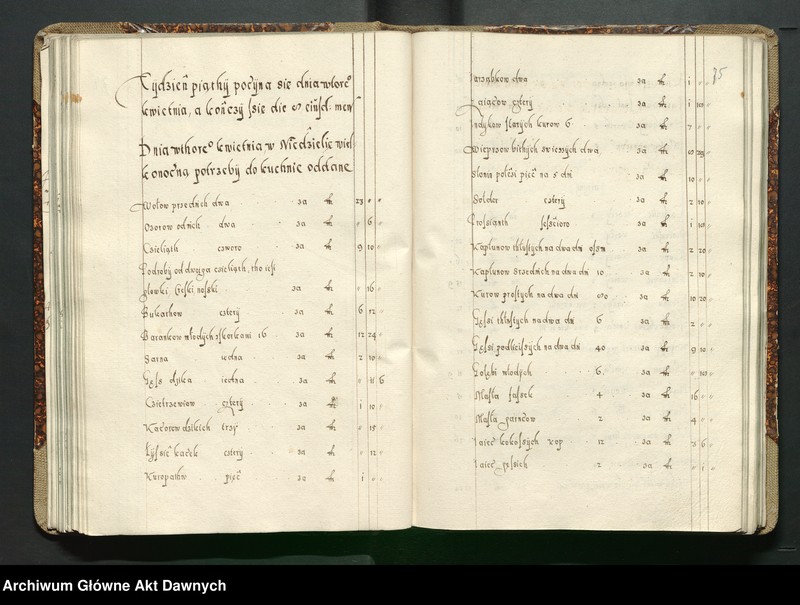 Tydzień piąthy poczyna się dnia wtoro
kwietnia, a kończy się die 8 eiusd. men
Dnia wthoro kwietnia w Niedzielie wiel
konoczną potrzeby do kuchnie oddane
Wołow przednich dwa za fl 23
Ozorow odnich dwa za fl 6
Czieliąth czworo za fl 9 10
Podroby od dwoyga czieliąth, tho iest
głowki, nożki za fl 16
Bukathow cztery za fl 6 12
Barankow młodych skorkami 16 za fl 12 24
Sarna iedna za fl 2 10
Gęś dzika iedna za fl 6
Czietrzewiow cztery za fl 1 10
Kaczorow dzikich trzy za fl 15
kaczek cztery za fl 12
Kuropathw pięć za fl 1
75
Jarząbkow dwa za fl 1
Zaiączow cztery za fl 1 10
Indykow kurow 6 za fl 7
Wieprzow bithych dwa za fl
Słonin połczi pięć na 5 dni za fl 10
Sołder cztery za fl 2 10
Prosiąnth sześcioro za fl 1
Kapłunow thłustych na dwa dni ośm za fl 2 20
Kapłunow srzednich na dwa dni 10 za fl 2 10
Kurow prostych na dwa dni za fl 10 20
Gęsi thłustych na dwa dni 6 za fl 2
Gęsi podleiszych na dwa dni 40 za fl 9 10
Gołębi młodych 6 za fl
Masła fasek 4 za fl 16
Masła garncow 2 za fl 4
Jaiec kokoszych kop 12 za fl 6
Jaiec gęsich 2 za fl 1
Archiwum Główne Akt Dawnych